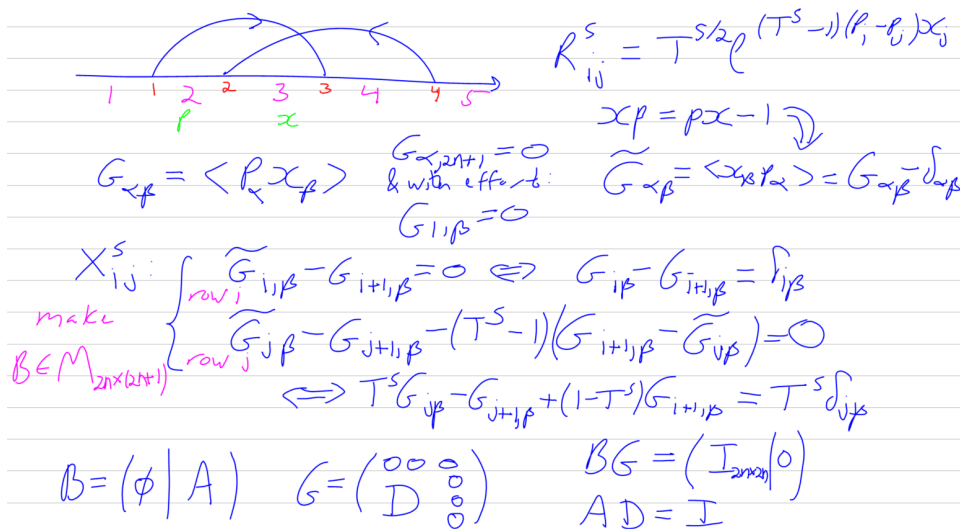 R^s_{ij} = T^{s/2} e^{(T^s-1)(p_i-p_j)x_j}
1 1 2 2 3 3 4 4 5
p x
xp = px-1
G_{αβ} = <p_α x_β>
G_{α,2n+1} = 0
& with effort:
G_{1,β} = 0
G̃_{αβ} = <x_β p_α> = G_{αβ} - δ_{αβ}
X^s_{ij}:
make
B ∈ M_{2n×(2n+1)}
row i G̃_{i,β} - G_{i+1,β} = 0 ⇔ G_{iβ} - G_{i+1,β} = δ_{iβ}
row j G̃_{jβ} - G_{j+1,β} - (T^s-1)(G_{i+1,β} - G̃_{jβ}) = 0
⇔ T^s G_{jβ} - G_{j+1,β} + (1-T^s)G_{i+1,β} = T^s δ_{jβ}
B = (φ | A)
G = (0 0 0
D 0
0
0)
BG = (I_{2n×2n} | 0)
AD = I